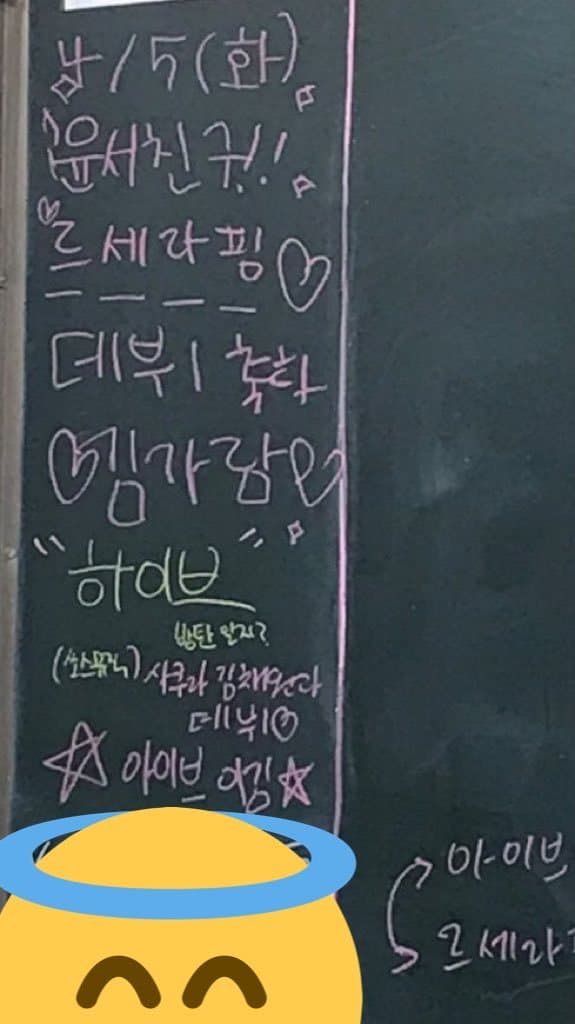 4/5(화)
윤서친구!!
♡르세라핌♡
데뷔 축하
♡김가람♡
"하이브"
방탄 알지?
(쏘스뮤직) 사쿠라 김채원 다
데뷔♡
☆아이브 이김☆
아이브
르세라